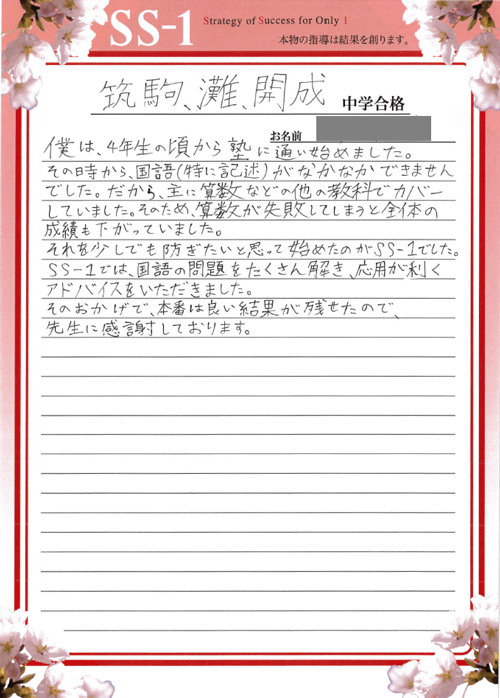 SS-1
Strategy of Success for Only 1
本物の指導は結果を創ります。
筑駒、灘、開成 中学合格
お名前
僕は、4年生の頃から塾に通い始めました。
その日時から、国語(特に記述)がなかなかできません
でした。だから、主に算数などの他の教科でカバー
していました。そのため、算数が失敗してしまうと全体の
成績も下がっていました。
それを少しでも防ぎたいと思って始めたのがSS-1でした。
SS-1では、国語の問題をたくさん解き、応用が利く
アドバイスをいただきました。
そのおかげで、本番は良い結果が残せたので、
先生に感謝しております。